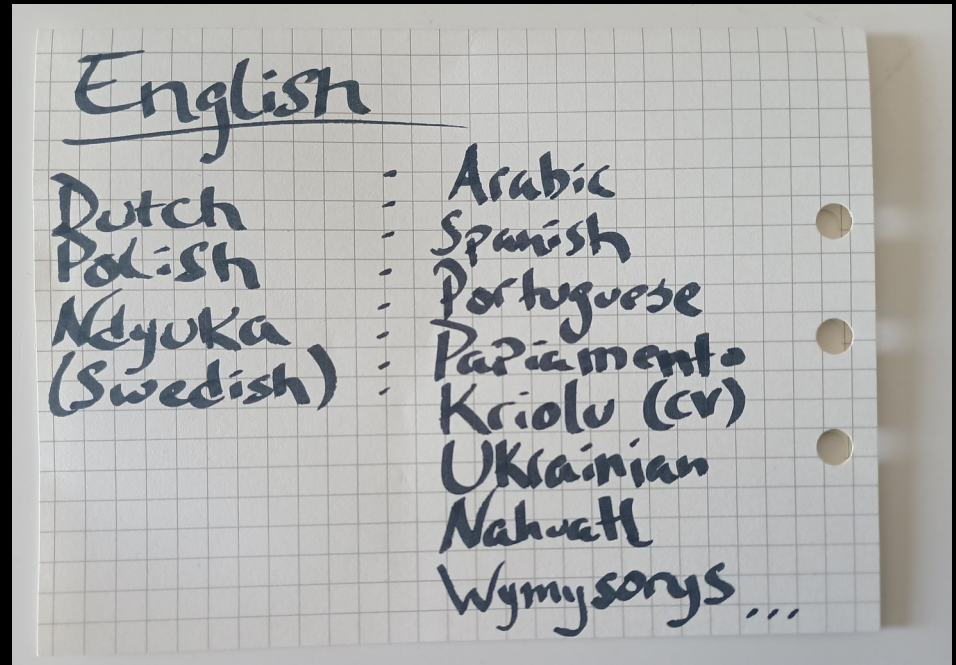 English
Dutch
Polish
Ndyuka
(Swedish)
Arabic
Spanish
Portuguese
Papiamento
Kriolu (CV)
Ukrainian
Nahuatl
Wymysorys...